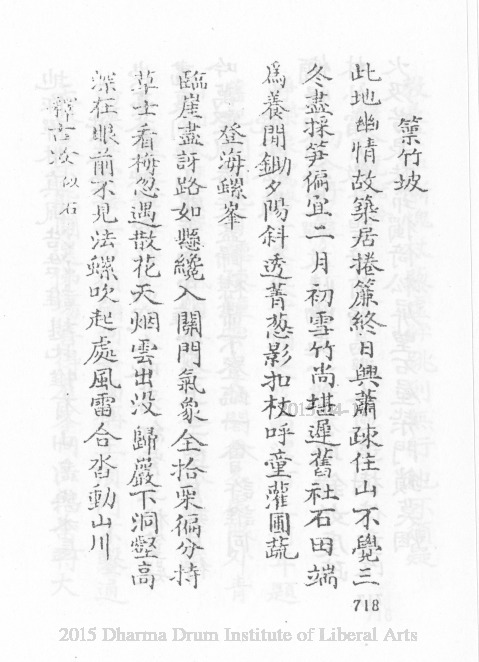 箓竹坡
此地幽情故築居捲簾終日興蕭疎住山不覺三
冬盡採笋偏宜二月初雪竹尚堪遲舊社石田端
為養閒鋤夕陽斜透菁蔥影扣杖呼童灌圃蔬
登海螺峯
臨崖盡訝路如懸纔入關門氣象全拾果徧分持
草士看梅忽遇散花天烟雲出没歸巖下洞壑高
深在眼前不見法螺吹起處風雷合沓動山川
釋古汝似石
718
2015 Dharma Drum Institute of Liberal Arts